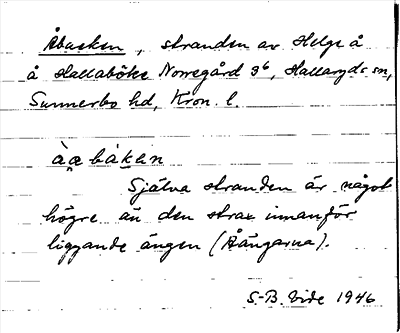 Åbacken, stranden av Helge å
å Hallaböke Norregård 3⁶, Hallaryds sn,
Sunnerbo hd, Kron. l.
àa̯ bàken
Själva stranden är något
högre än den strax innanför
liggande ängen (Åängarna).
S.-B. Vide 1946